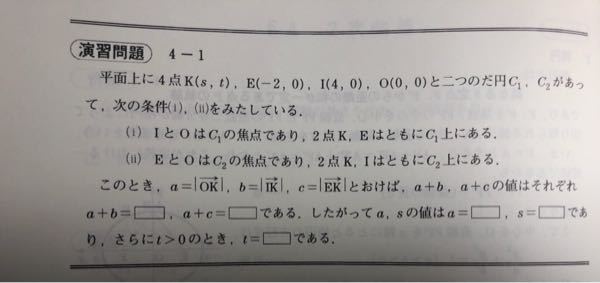 演習問題 4－1
平面上に4点K(s, t), E(−2, 0), I(4, 0), O(0, 0)と二つのだ円C₁, C₂があっ
て, 次の条件(i), (ii)をみたしている.
(i) IとOはC₁の焦点であり, 2点K, EはともにC₁上にある.
(ii) EとOはC₂の焦点であり, 2点K, IはともにC₂上にある.
このとき, a=|\overrightarrow{OK}|, b=|\overrightarrow{IK}|, c=|\overrightarrow{EK}|とおけば, a+b, a+cの値はそれぞれ
a+b=□, a+c=□である. したがってa, sの値はa=□, s=□であ
り, さらにt>0のとき, t=□である.